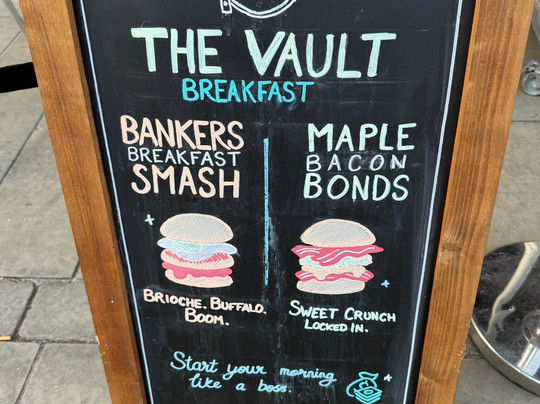 THE VAULT
BREAKFAST
BANKERS
BREAKFAST
SMASH
BRIOCHE. BUFFALO.
BOOM.
MAPLE
BACON
BONDS
SWEET CRUNCH
LOCKED IN.
Start your morning
like a boss.